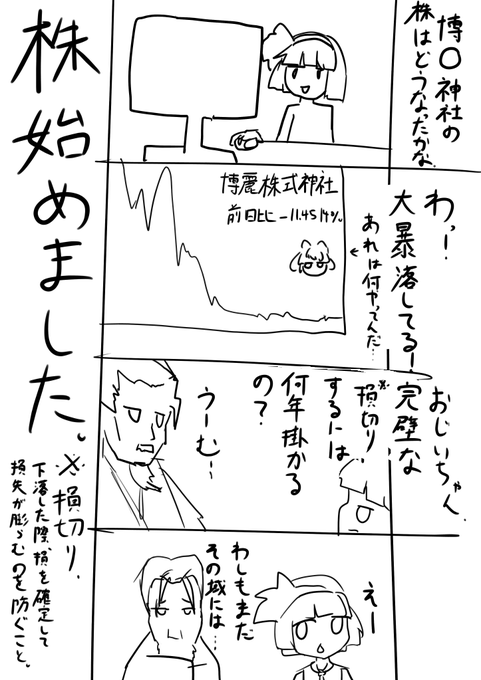 株始めました。
博〇神社の
株はどうなったかな
博麗株式神社
前日比-11.4514%
わっ!
大暴落してる!
あれは何やってんだ…
おじいちゃん、
完璧な
※損切り、
するには
何年掛かる
の?
うーむ…
えー
わしもまだ
その域には…
※損切り、
下落した際、損を確定して
損失が膨らむのを防ぐこと。